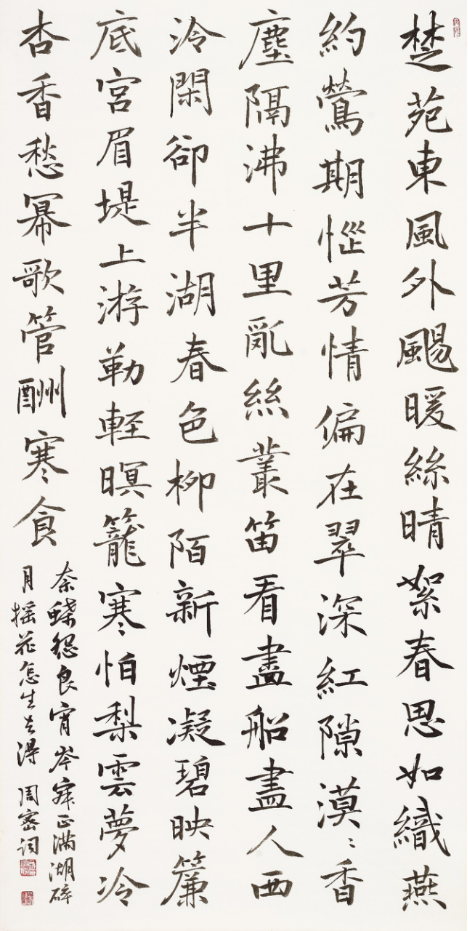 楚苑東風外颺暖絲晴絮春思如織燕
約鶯期惱芳情偏在翠深紅隙漠〻香
塵隔沸十里亂絲叢笛看盡船盡入西
泠閑卻半湖春色柳陌新煙凝碧映簾
底宮眉堤上游勒輕暝籠寒怕梨雲夢冷
杏香愁冪歌管酬寒食
奈蝶怨良宵岑寂正滿湖碎
月搖花怎生去得 周密詞